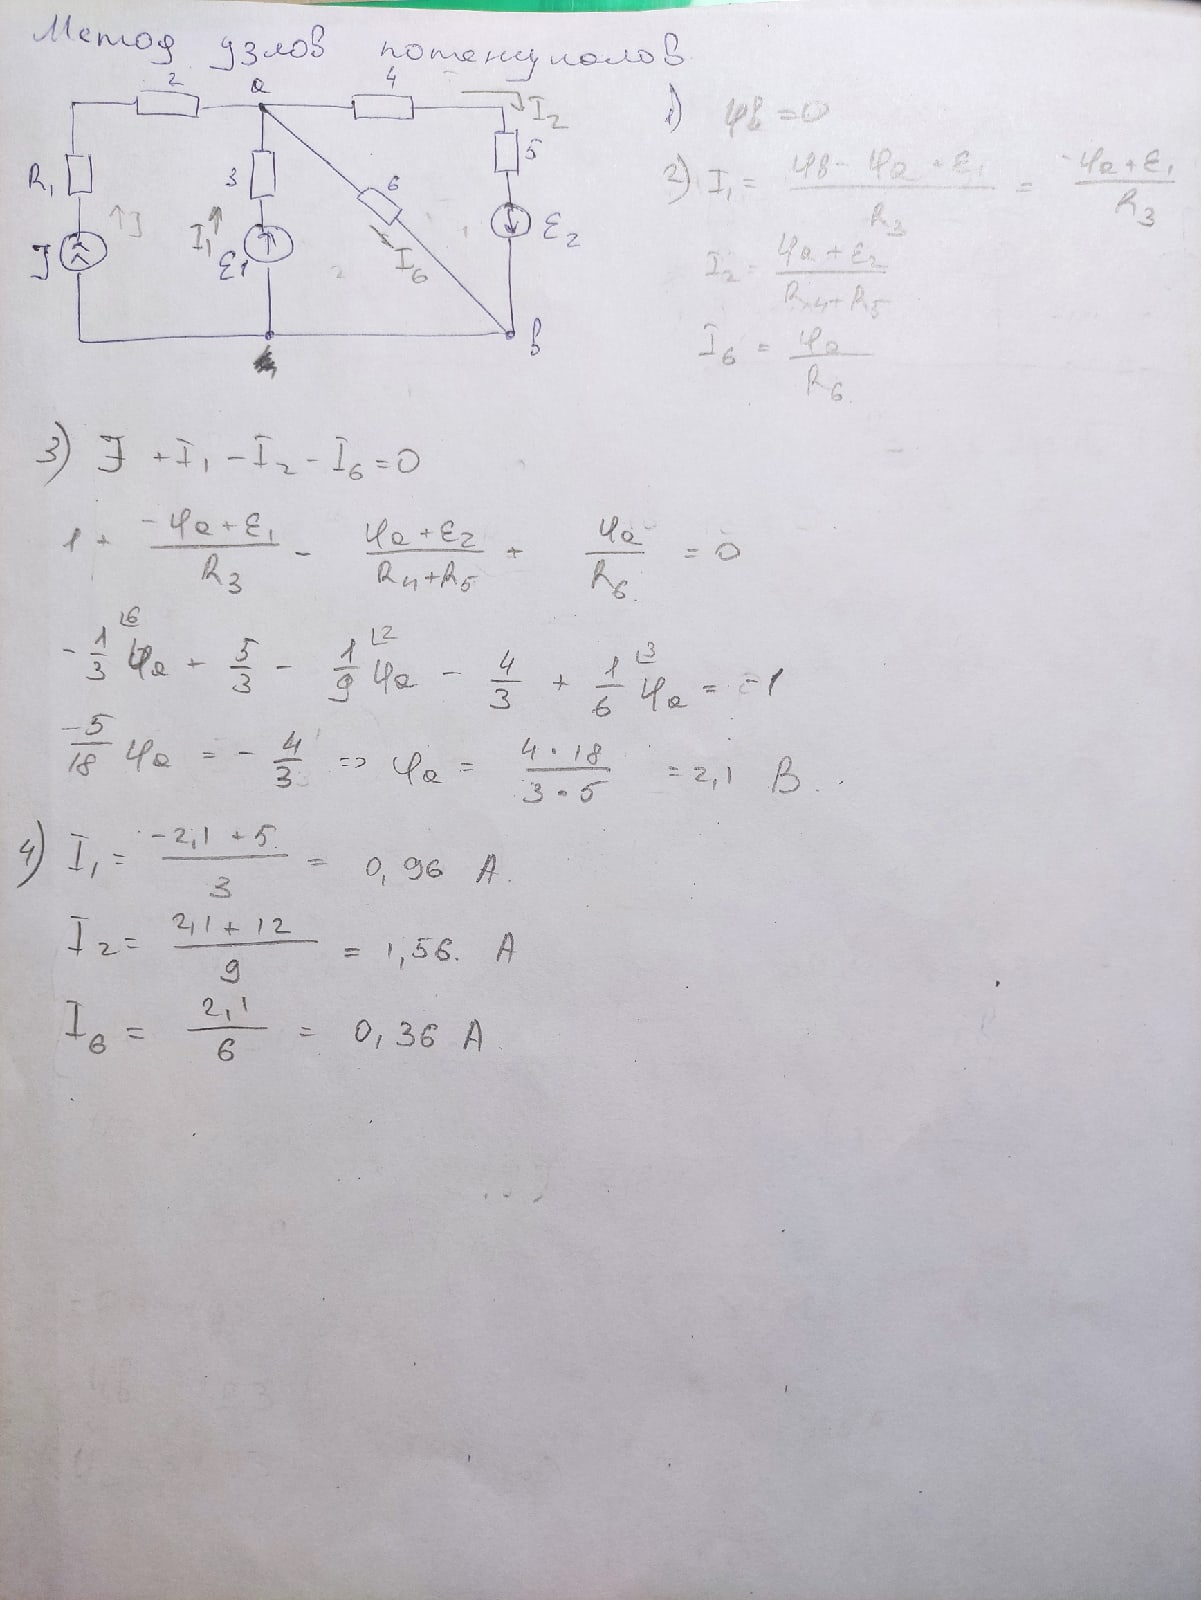 Метод узлов потенциалов
2 a 4 I₂
R₁ 3 6 5
J ↑J I₁↑ ε1 I₆ ε₂
b
1) φb = 0
2) I₁ = (φb - φa + ε₁)/R₃ = (-φa + ε₁)/R₃
I₂ = (φa + ε₂)/(R₄ + R₅)
I₆ = φa/R₆
3) J + I₁ - I₂ - I₆ = 0
1 + (-φa + ε₁)/R₃ - (φa + ε₂)/(R₄ + R₅) + φa/R₆ = 0
-1/3 ⌊6 φa + 5/3 - 1/9 ⌊2 φa - 4/3 + 1/6 ⌊3 φa = -1
-5/18 φa = - 4/3 => φa = (4·18)/(3·5) = 2,1 В.
4) I₁ = (-2,1 + 5)/3 = 0,96 А.
I₂ = (2,1 + 12)/9 = 1,56. А
I₆ = 2,1/6 = 0,36 А